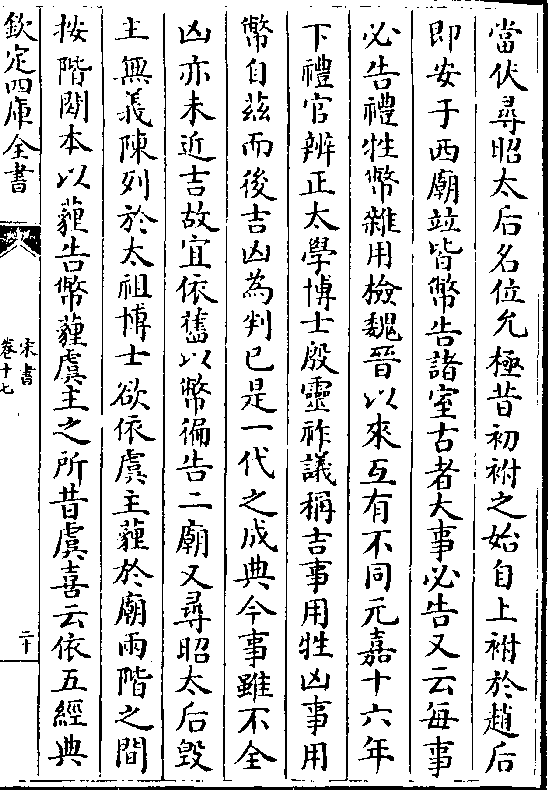 當伏尋昭太后名位允極昔初祔之始自上祔於趙后
即安于西廟竝皆幣告諸室古者大事必告又云每事
必告禮牲幣雜用檢魏晉以來互有不同元嘉十六年
下禮官辨正太學博士殷靈祚議稱吉事用牲凶事用
幣自茲而後吉凶為判已是一代之成典今事雖不全
凶亦未近吉故宜依舊以幣徧告二廟又尋昭太后毀
主無義陳列於太祖博士欲依虞主薶於廟兩階之間
按階閒本以薶告幣薶虞主之所昔虞喜云依五經典
欽定四庫全書
宋書
卷十七
二十